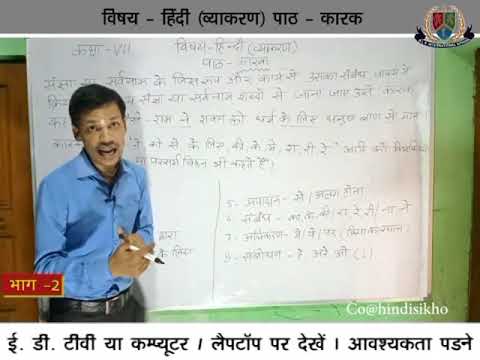 विषय - हिंदी (व्याकरण) पाठ - कारक
कक्षा-VII विषय-हिन्दी (व्याकरण)
पाठ-कारक
संज्ञा या सर्वनाम के जिस रूप और कार्य से उसका संबंध वाक्य में
संज्ञा या सर्वनाम शब्दों से जाना जाए उसे कारक
राम ने रावण को धर्म के लिए धनुष बाण से मारा।
ने को से के लिए की के में रा री रे आदि को विभक्ति
या परसर्ग चिह्न भी कहते हैं।
5- अपादान - से / अलग होना
6- संबंध - का, के, की / रा, रे, री / ना, ने
द्वारा 7- अधिकरण - में / पे / पर /
के लिए 8- संबोधन - हे अरे ओ (!)
भाग -2
Co@hindisikho
ई. डी. टीवी या कम्प्यूटर / लैपटॉप पर देखें । आवश्यकता पडने